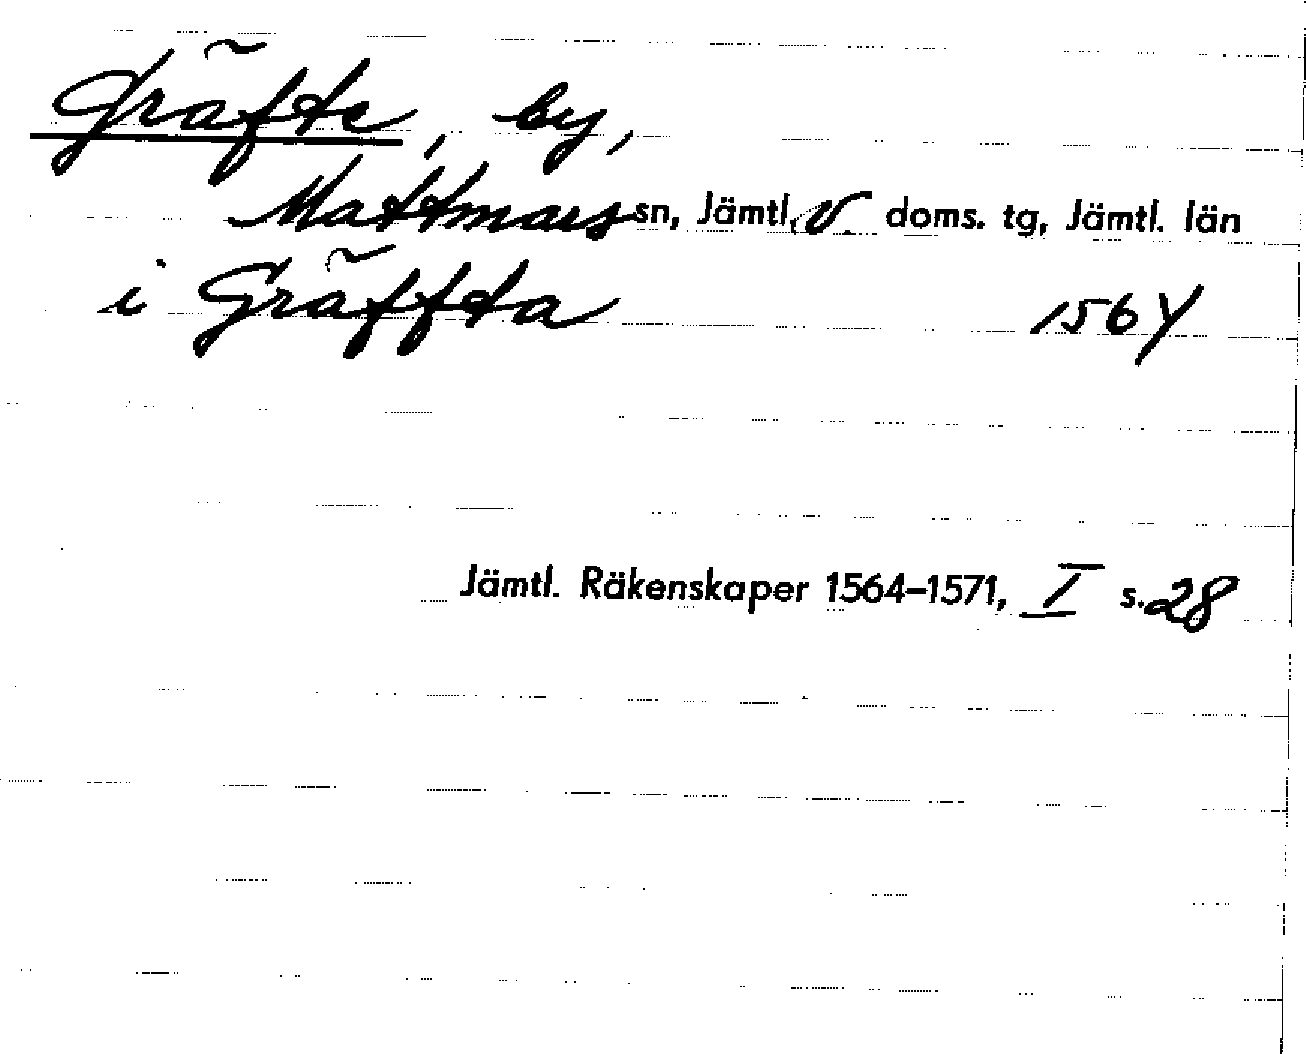 Gräfte, by,
Mattmars sn, Jämtl. V. doms. tg, Jämtl. län
i Gräffta 1564
Jämtl. Räkenskaper 1564–1571, I s. 28